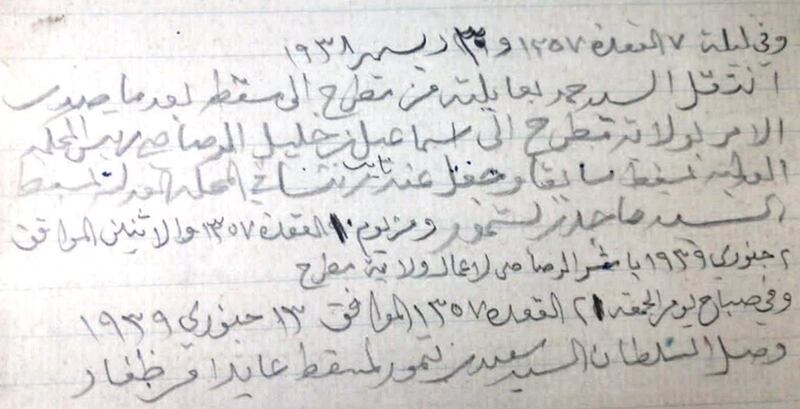 وفي ليلة ٧ القعدة ١٣٥٧ و ٣٠ ديسمبر ١٩٣٨
انتقل السيد حمد بعايلته من مطرح الى مسقط بعد ما صدر
الامر لولاية مطرح الى اسماعيل بن خليل الرصاصي رييس المحكمة
العدلية بمسقط سابقا وجعل عنه نائب في المحكمة العدلية بمسقط
السيد ماجد بن تيمور ومن يوم ١٠ القعدة ١٣٥٧ والاثنين الموافق
٢ جنوري ١٩٣٩ باشر الرصاصي لاعمال ولاية مطرح
وفي صباح يوم الجمعة ٢١ القعدة ١٣٥٧ الموافق ١٣ جنوري ١٩٣٩
وصل السلطان السيد سعيد بن تيمور لمسقط عايدا من ظفار